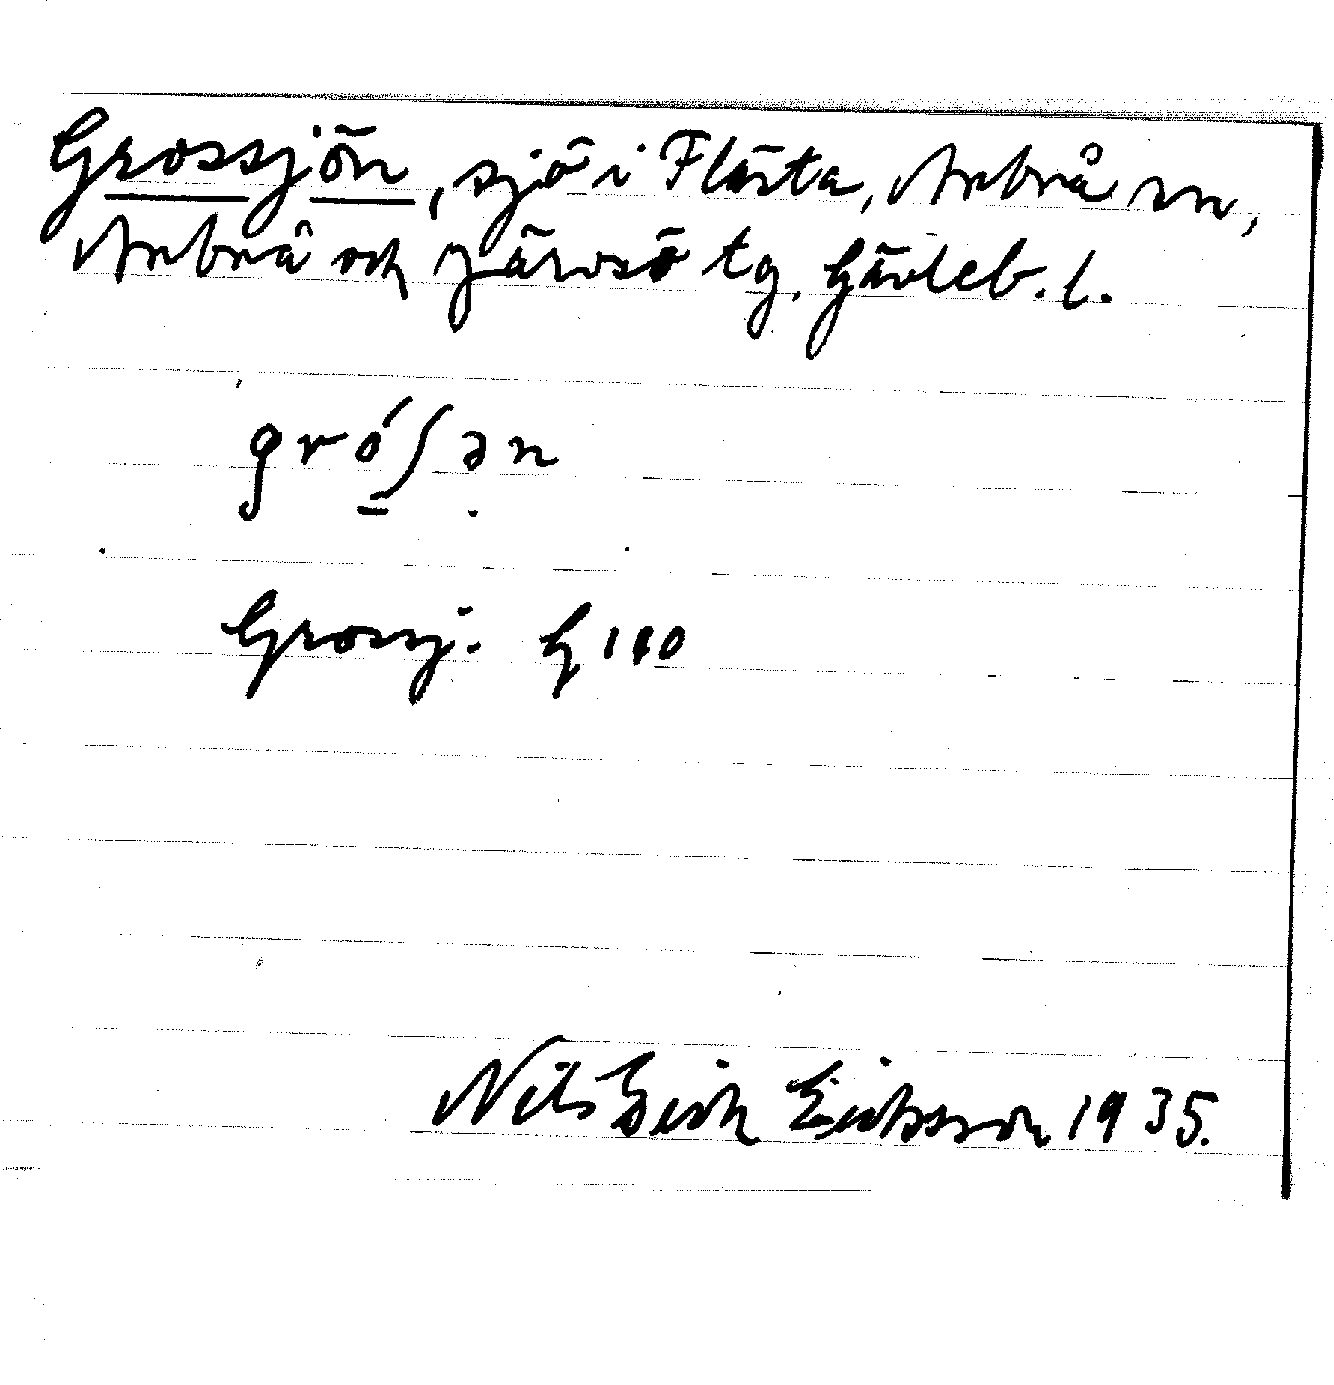 Grossjön, sjö i Flästa, Arbrå sn,
Arbrå och Järvsö tg, Gävleb. l.
gró̱ʃən
Grossj. G 110
Nils Erik Eriksson 1935.